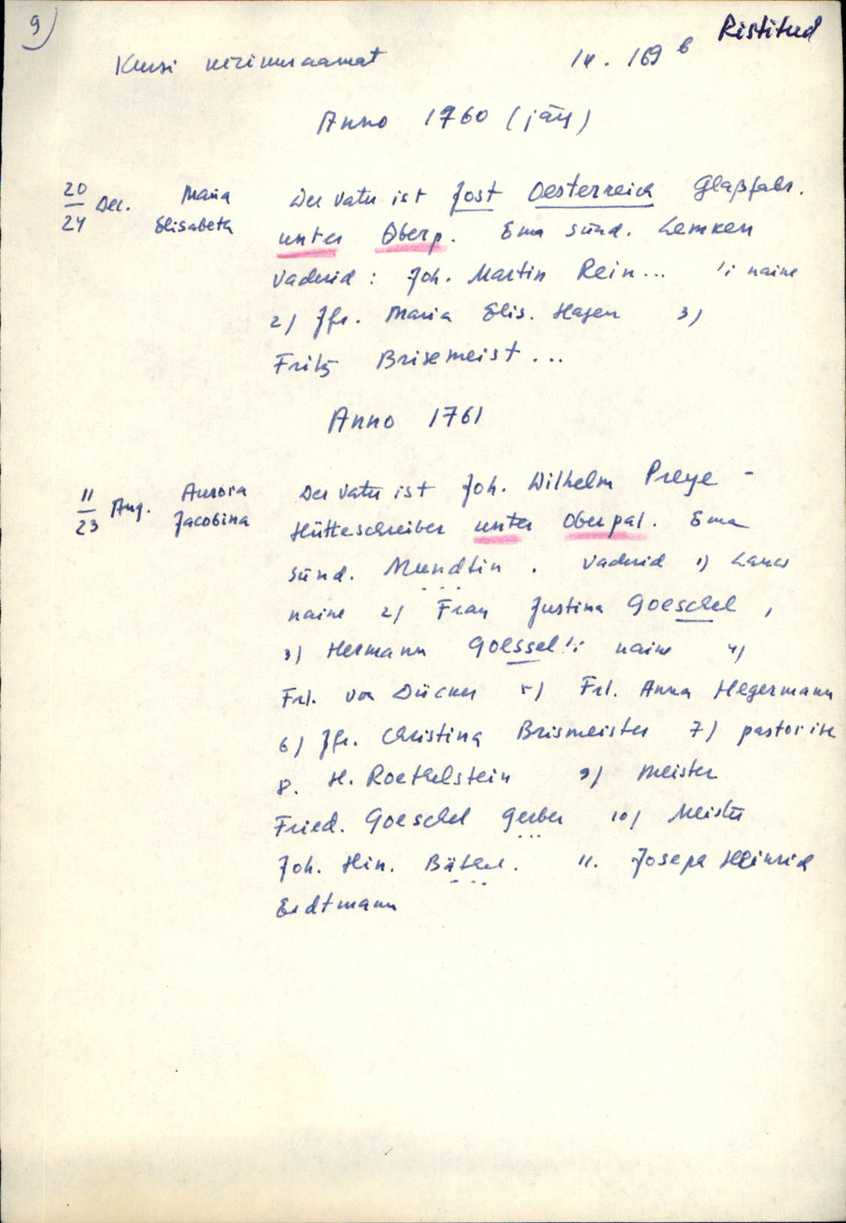 9)
Ristitud
Kursi kirikuraamat lk. 169 b
Anno 1760 (järg)
20/24 Dec. Maria Elisabeth
Der Vater ist Jost Oesterreich Glaßfabr.
unter Oberp. Ema sünd. Lemken
Vaderid: Joh. Martin Rein... 'i naine
2) Jfr. Maria Elis. Hagen 3)
Fritz Brisemeist...
Anno 1761
11/23 Aug. Aurora Jacobina
Der Vater ist Joh. Wilhelm Preye -
Hütteschreiber unter Oberpal. Ema
sünd. Mundtin. Vaderid 1)
naine 2) Frau Justina Goeschel,
3) Hermann Goessel'i naine 4)
Frl. von Dücker 5) Frl. Anna Hegermann
6) Jfr. Christina Brismeister 7)
8. H. Roethelstein 9) Meister
Fried. Goeschel Gerber 10) Meister
Joh. Hin. 11. Joseph Heinrich
Erdtmann